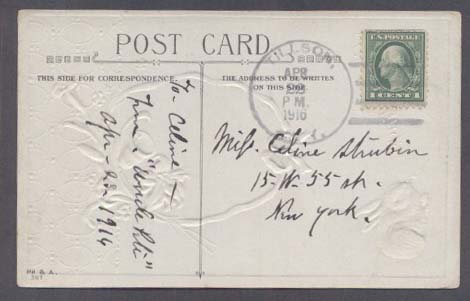 POST CARD
THIS SIDE FOR CORRESPONDENCE.
THE ADDRESS TO BE WRITTEN
ON THIS SIDE
TILLSON
APR
P M
1916
N.Y.
U.S. POSTAGE
1 CENT 1
To Celine —
from "Uncle Pete"
Apr - 22. 1916
Miss Celine Strubin
15-W-55 st.
New York.
PH G. A.